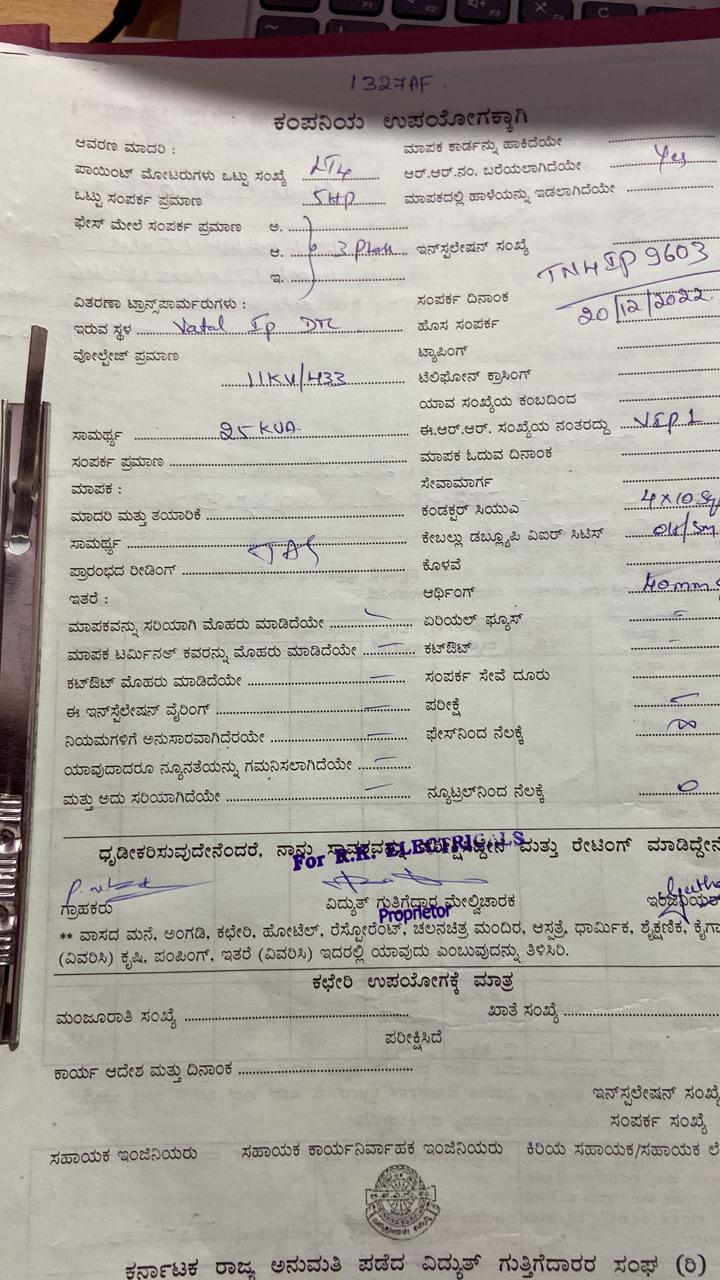 1327AF
ಕಂಪನಿಯ ಉಪಯೋಗಕ್ಕಾಗಿ
ಆವರಣ ಮಾದರಿ : ಮಾಪಕ ಕಾರ್ಡನ್ನು ಹಾಕಿದೆಯೇ
ಪಾಯಿಂಟ್ ಮೋಟರುಗಳು ಒಟ್ಟು ಸಂಖ್ಯೆ LT4 ಆರ್.ಆರ್.ನಂ. ಬರೆಯಲಾಗಿದೆಯೇ Yes
ಒಟ್ಟು ಸಂಪರ್ಕ ಪ್ರಮಾಣ 5HP ಮಾಪಕದಲ್ಲಿ ಹಾಳೆಯನ್ನು ಇಡಲಾಗಿದೆಯೇ
ಫೇಸ್ ಮೇಲೆ ಸಂಪರ್ಕ ಪ್ರಮಾಣ ಅ.
ಆ. 3 ಇನ್ಸ್ಪಲೇಷನ್ ಸಂಖ್ಯೆ TNHIP9603
ಇ.
ವಿತರಣಾ ಟ್ರಾನ್ಸ್‌ಪಾರ್ಮರುಗಳು : ಸಂಪರ್ಕ ದಿನಾಂಕ 20/12/2022
ಇರುವ ಸ್ಥಳ Vatal Ip DTC ಹೊಸ ಸಂಪರ್ಕ
ವೋಲ್ಟೇಜ್ ಪ್ರಮಾಣ ಟ್ಯಾಪಿಂಗ್
11KV/433 ಟೆಲಿಫೋನ್ ಕ್ರಾಸಿಂಗ್
ಯಾವ ಸಂಖ್ಯೆಯ ಕಂಬದಿಂದ
ಸಾಮರ್ಥ್ಯ 25 KVA ಈ.ಆರ್.ಆರ್. ಸಂಖ್ಯೆಯ ನಂತರದ್ದು VIP1
ಸಂಪರ್ಕ ಪ್ರಮಾಣ ಮಾಪಕ ಓದುವ ದಿನಾಂಕ
ಮಾಪಕ : ಸೇವಾಮಾರ್ಗ
ಮಾದರಿ ಮತ್ತು ತಯಾರಿಕೆ ಕಂಡಕ್ಟರ್ ಸಿಯುಎ 4×10 Sq
ಸಾಮರ್ಥ್ಯ ಕೇಬಲ್ಲು ಡಬ್ಲ್ಯೂಪಿ ವಿಐರ್ ಸಿಟಿಸ್ OH/Sm
ಪ್ರಾರಂಭದ ರೀಡಿಂಗ್ ಕೊಳವೆ
ಇತರೆ : ಆರ್ಥಿಂಗ್ 40mm
ಮಾಪಕವನ್ನು ಸರಿಯಾಗಿ ಮೊಹರು ಮಾಡಿದೆಯೇ ಏರಿಯಲ್ ಫ್ಯೂಸ್
ಮಾಪಕ ಟರ್ಮಿನಲ್ ಕವರನ್ನು ಮೊಹರು ಮಾಡಿದೆಯೇ ಕಟ್‌ಔಟ್
ಕಟ್‌ಔಟ್ ಮೊಹರು ಮಾಡಿದೆಯೇ ಸಂಪರ್ಕ ಸೇವೆ ದೂರು
ಈ ಇನ್‌ಸ್ಟಲೇಷನ್ ವೈರಿಂಗ್ ಪರೀಕ್ಷೆ
ನಿಯಮಗಳಿಗೆ ಅನುಸಾರವಾಗಿದೆರಯೇ ಫೇಸ್‌ನಿಂದ ನೆಲಕ್ಕೆ
ಯಾವುದಾದರೂ ನ್ಯೂನತೆಯನ್ನು ಗಮನಿಸಲಾಗಿದೆಯೇ
ಮತ್ತು ಅದು ಸರಿಯಾಗಿದೆಯೇ ನ್ಯೂಟ್ರಲ್‌ನಿಂದ ನೆಲಕ್ಕೆ 0
ಧೃಡೀಕರಿಸುವುದೇನೆಂದರೆ, ನಾನು ಮತ್ತು ರೇಟಿಂಗ್ ಮಾಡಿದ್ದೇನೆ
For R.K. ELECTRICALS
ಗ್ರಾಹಕರು ವಿದ್ಯುತ್ ಗುತ್ತಿಗೆದಾರ ಮೇಲ್ವಿಚಾರಕ
Proprietor
** ವಾಸದ ಮನೆ, ಅಂಗಡಿ, ಕಛೇರಿ, ಹೋಟೆಲ್, ರೆಸ್ಟೋರೆಂಟ್, ಚಲನಚಿತ್ರ ಮಂದಿರ, ಆಸ್ಪತ್ರೆ, ಧಾರ್ಮಿಕ, ಶೈಕ್ಷಣಿಕ, ಕೈಗಾ
(ವಿವರಿಸಿ) ಕೃಷಿ, ಪಂಪಿಂಗ್, ಇತರೆ (ವಿವರಿಸಿ) ಇದರಲ್ಲಿ ಯಾವುದು ಎಂಬುವುದನ್ನು ತಿಳಿಸಿರಿ.
ಕಛೇರಿ ಉಪಯೋಗಕ್ಕೆ ಮಾತ್ರ
ಮಂಜೂರಾತಿ ಸಂಖ್ಯೆ ಖಾತೆ ಸಂಖ್ಯೆ
ಪರೀಕ್ಷಿಸಿದೆ
ಕಾರ್ಯ ಆದೇಶ ಮತ್ತು ದಿನಾಂಕ
ಇನ್‌ಸ್ಪಲೇಷನ್ ಸಂಖ್ಯೆ
ಸಂಪರ್ಕ ಸಂಖ್ಯೆ
ಸಹಾಯಕ ಇಂಜಿನಿಯರು ಸಹಾಯಕ ಕಾರ್ಯನಿರ್ವಾಹಕ ಇಂಜಿನಿಯರು ಕಿರಿಯ ಸಹಾಯಕ/ಸಹಾಯಕ ಲೆ
ಕರ್ನಾಟಕ ರಾಜ್ಯ ಅನುಮತಿ ಪಡೆದ ವಿದ್ಯುತ್ ಗುತ್ತಿಗೆದಾರರ ಸಂಘ (ರಿ)